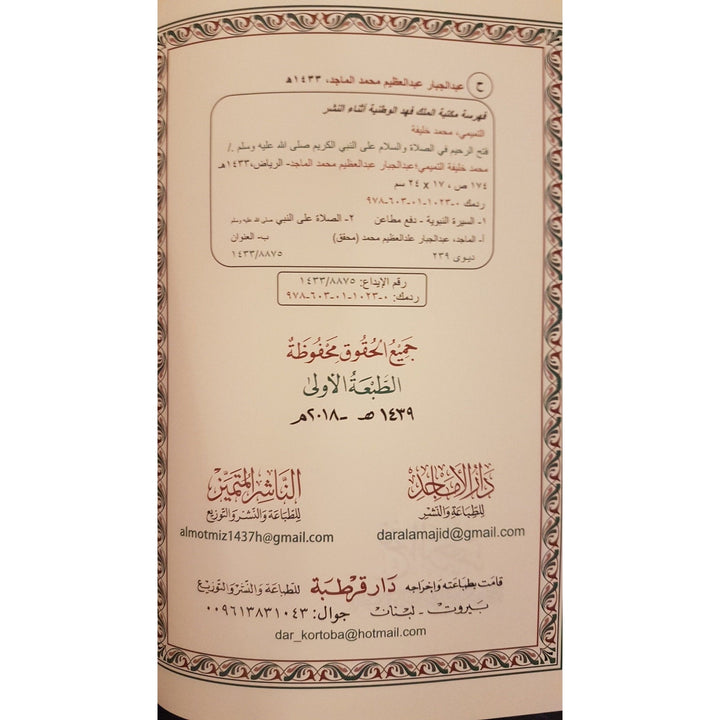 ح عبدالجبار عبدالعظيم محمد الماجد، ١٤٣٣هـ
فهرسة مكتبة الملك فهد الوطنية أثناء النشر
التميمي، محمد خليفة
فتح الرحيم في الصلاة والسلام على النبي الكريم صلى الله عليه وسلم ./
محمد خليفة التميمي؛عبدالجبار عبدالعظيم محمد الماجد- الرياض،١٤٣٣هـ
١٧٤ ص ، ١٧ x ٢٤ سم
ردمك ٠-١٠٢٣-٠١-٦٠٣-٩٧٨
١- السيرة النبوية - دفع مطاعن ٢- الصلاة على النبي صلى الله عليه وسلم
أ- الماجد، عبدالجبار علدالعظيم محمد (محقق) ب- العنوان
ديوى ٢٣٩ ١٤٣٣/٨٨٧٥
رقم الإيداع: ١٤٣٣/٨٨٧٥
ردمك: ٠-١٠٢٣-٠١-٦٠٣-٩٧٨
جَمِيْعُ الحُقُوق مَحْفُوظَةٌ
الطَّبْعَةُ الأولىٰ
١٤٣٩ هـ -٢٠١٨م
دَارُ الأَمَاجِدْ
للطِّبَاعَةِ وَالنَّشْرِ
daralamajid@gmail.com
النَّاشِرُ المُتَمَيِّز
لِلطِّبَاعَة وَالنَّشْرِ وَالتَّوْزِيع
almotmiz1437h@gmail.com
قامَت بطبَاعته وَإخرَاجه دَار قُرْطُبَة للطبَاعَة وَالنَّشْر وَالتَّوْزيْع
بَيروت - لبْنَان جوال: ٠٠٩٦١٣٨٣١٠٤٣
dar_kortoba@hotmail.com